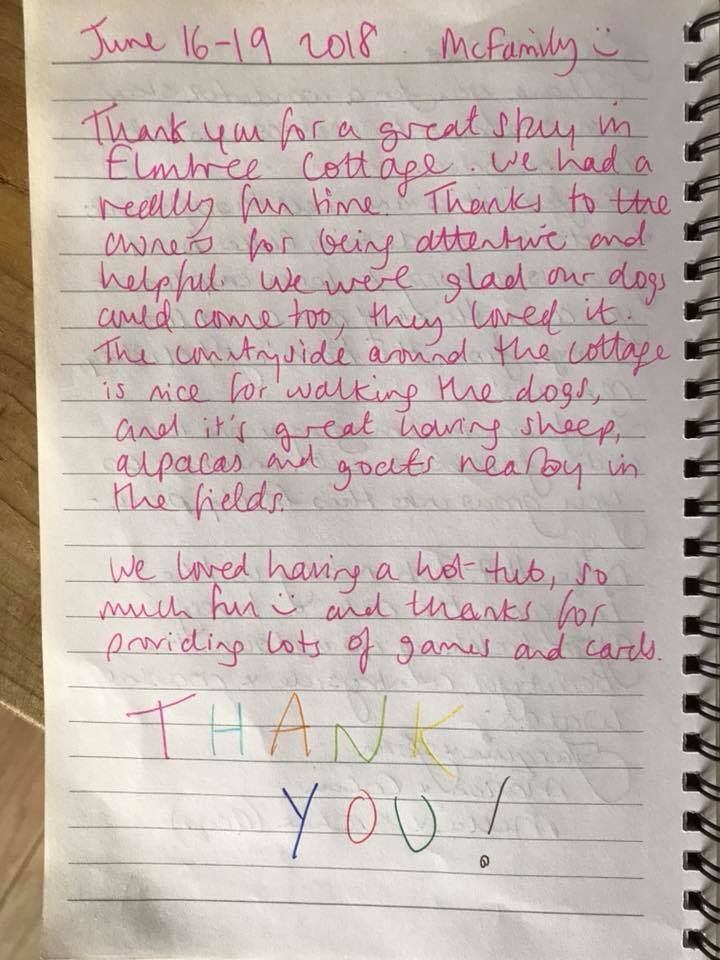 June 16-19 2018 McFamily :)
Thank you for a great stay in
Elmtree Cottage. We had a
really fun time. Thanks to the
owners for being attentive and
helpful. We were glad our dogs
could come too, they loved it.
The countryside around the cottage
is nice for walking the dogs,
and it's great having sheep,
alpacas and goats nearby in
the fields.
We loved having a hot tub, so
much fun :) and thanks for
providing lots of games and cards.
THANK
YOU!